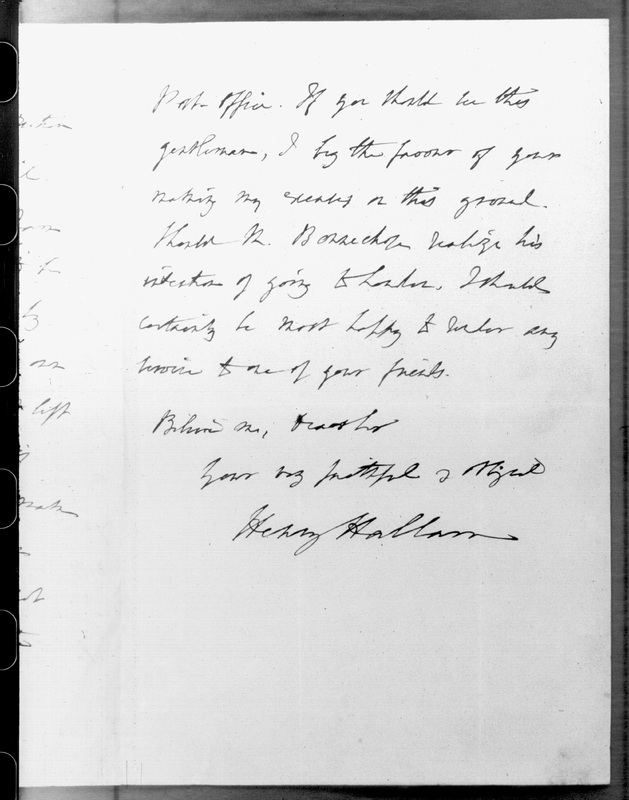 Post Office. If you should see this
gentleman, I beg the favour of your
making my excuses on this ground.
Should M. Bonnechose realize his
intention of going to London, I should
certainly be most happy to render any
service to one of your friends.
Believe me, dear Sir
Your very faithful & obliged
Henry Hallam
left